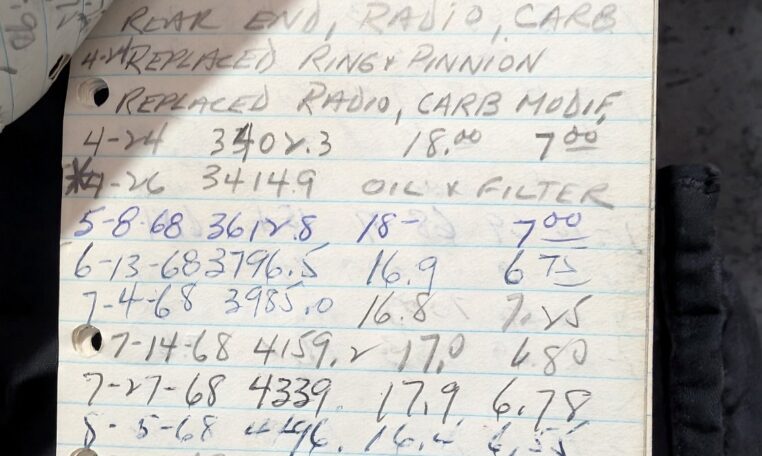 REAR END, RADIO, CARB
4-24 REPLACED RING & PINNION
REPLACED RADIO, CARB MODIF,
4-24 3402.3 18.00 7 00
*4-26 3414.9 OIL & FILTER
5-8-68 3612.8 18- 7 00
6-13-68 3796.5 16.9 6 75
7-4-68 3985.0 16.8 7.25
7-14-68 4159.2 17.0 6.80
7-27-68 4339. 17.9 6.78
5-68 16.4 6.55